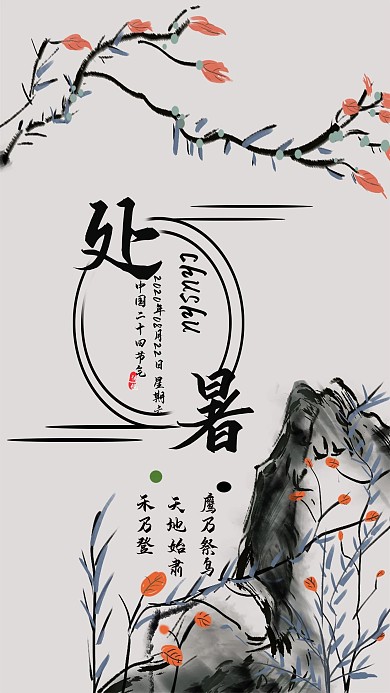 处暑
chushu
2020年08月22日 星期六
中国二十四节气
鹰乃祭鸟
天地始肃
禾乃登